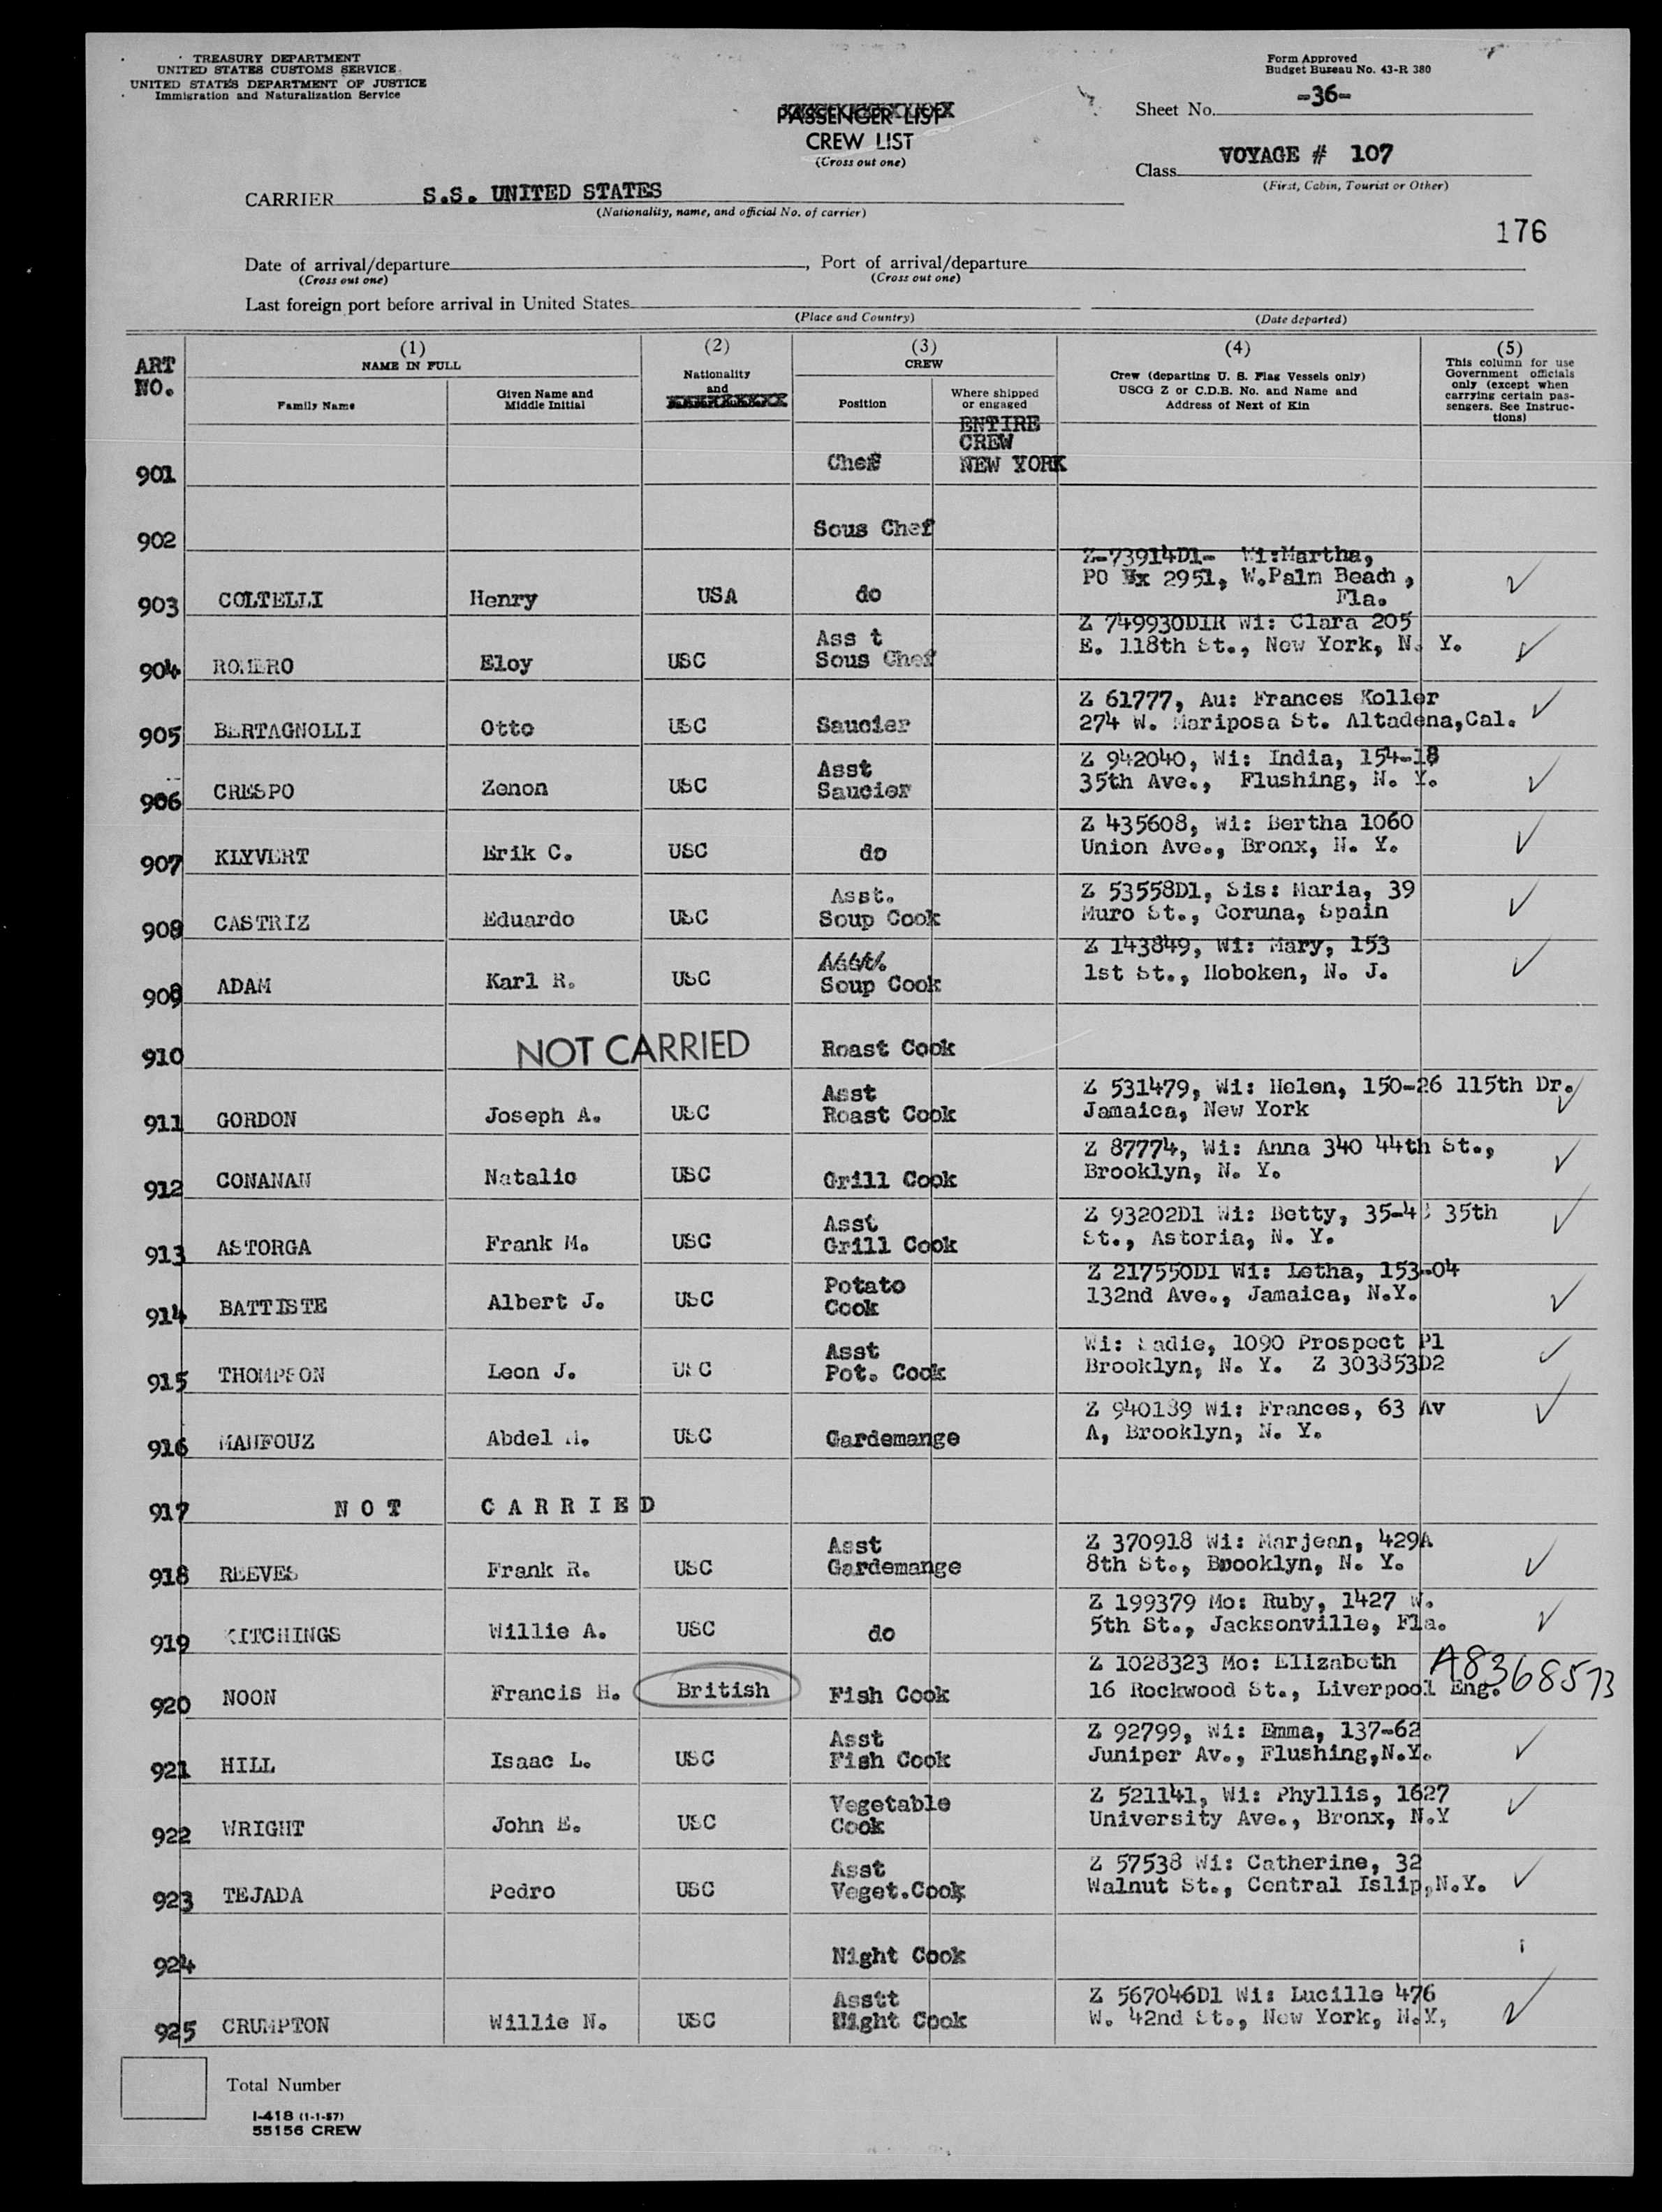 TREASURY DEPARTMENT
UNITED STATES CUSTOMS SERVICE
UNITED STATES DEPARTMENT OF JUSTICE
Immigration and Naturalization Service
Form Approved
Budget Bureau No. 43-R 380
Sheet No. -36-
PASSENGER LIST
CREW LIST
(Cross out one)
Class VOYAGE # 107
(First, Cabin, Tourist or Other)
CARRIER S.S. UNITED STATES
(Nationality, name, and official No. of carrier)
176
Date of arrival/departure , Port of arrival/departure
(Cross out one) (Cross out one)
Last foreign port before arrival in United States
(Place and Country) (Date departed)
ART NO.
(1)
NAME IN FULL
Family Name
Given Name and Middle Initial
(2)
Nationality
and
(3)
CREW
Position
Where shipped or engaged
(4)
Crew (departing U. S. Flag Vessels only)
USCG Z or C.D.B. No. and Name and
Address of Next of Kin
(5)
This column for use
Government officials
only (except when
carrying certain pas-
sengers. See Instruc-
tions)
ENTIRE
CREW
901 Chef NEW YORK
902 Sous Chef
Z-73914D1- Wi:Martha,
PO Bx 2951, W.Palm Beach,
903 COLTELLI Henry USA do Fla.
Ass t Z 749930D1R Wi: Clara 205
904 ROMERO Eloy USC Sous Chef E. 118th St., New York, N. Y.
Z 61777, Au: Frances Koller
905 BERTAGNOLLI Otto USC Saucier 274 W. Mariposa St. Altadena,Cal.
Asst Z 942040, Wi: India, 154-18
906 CRESPO Zenon USC Saucier 35th Ave., Flushing, N. Y.
Z 435608, Wi: Bertha 1060
907 KLYVERT Erik C. USC do Union Ave., Bronx, N. Y.
Asst. Z 53558D1, Sis: Maria, 39
908 CASTRIZ Eduardo USC Soup Cook Muro St., Coruna, Spain
Asst. Z 143849, Wi: Mary, 153
909 ADAM Karl R. USC Soup Cook 1st St., Hoboken, N. J.
910 NOT CARRIED Roast Cook
Asst Z 531479, Wi: Helen, 150-26 115th Dr.
911 GORDON Joseph A. USC Roast Cook Jamaica, New York
Z 87774, Wi: Anna 340 44th St.,
912 CONANAN Natalio USC Grill Cook Brooklyn, N. Y.
Asst Z 93202D1 Wi: Betty, 35-4 35th
913 ASTORGA Frank M. USC Grill Cook St., Astoria, N. Y.
Potato Z 217550D1 Wi: Letha, 153-04
914 BATTISTE Albert J. USC Cook 132nd Ave., Jamaica, N.Y.
Asst Wi: Sadie, 1090 Prospect Pl
915 THOMPSON Leon J. USC Pot. Cook Brooklyn, N. Y. Z 303853D2
Z 940189 Wi: Frances, 63 Av
916 MAHFOUZ Abdel M. USC Gardemange A, Brooklyn, N. Y.
917 NOT CARRIED
Asst Z 370918 Wi: Marjean, 429A
918 REEVES Frank R. USC Gardemange 8th St., Bpooklyn, N. Y.
Z 199379 Mo: Ruby, 1427 W.
919 KITCHINGS Willie A. USC do 5th St., Jacksonville, Fla.
Z 1028323 Mo: Elizabeth A8368573
920 NOON Francis H. British Fish Cook 16 Rockwood St., Liverpool Eng.
Asst Z 92799, Wi: Emma, 137-62
921 HILL Isaac L. USC Fish Cook Juniper Av., Flushing,N.Y.
Vegetable Z 521141, Wi: Phyllis, 1627
922 WRIGHT John E. USC Cook University Ave., Bronx, N.Y
Asst Z 57538 Wi: Catherine, 32
923 TEJADA Pedro USC Veget.Cook Walnut St., Central Islip,N.Y.
924 Night Cook
Asstt Z 567046D1 Wi: Lucille 476
925 CRUMPTON Willie N. USC Night Cook W. 42nd St., New York, N.Y,
Total Number
I-418 (1-1-57)
55156 CREW